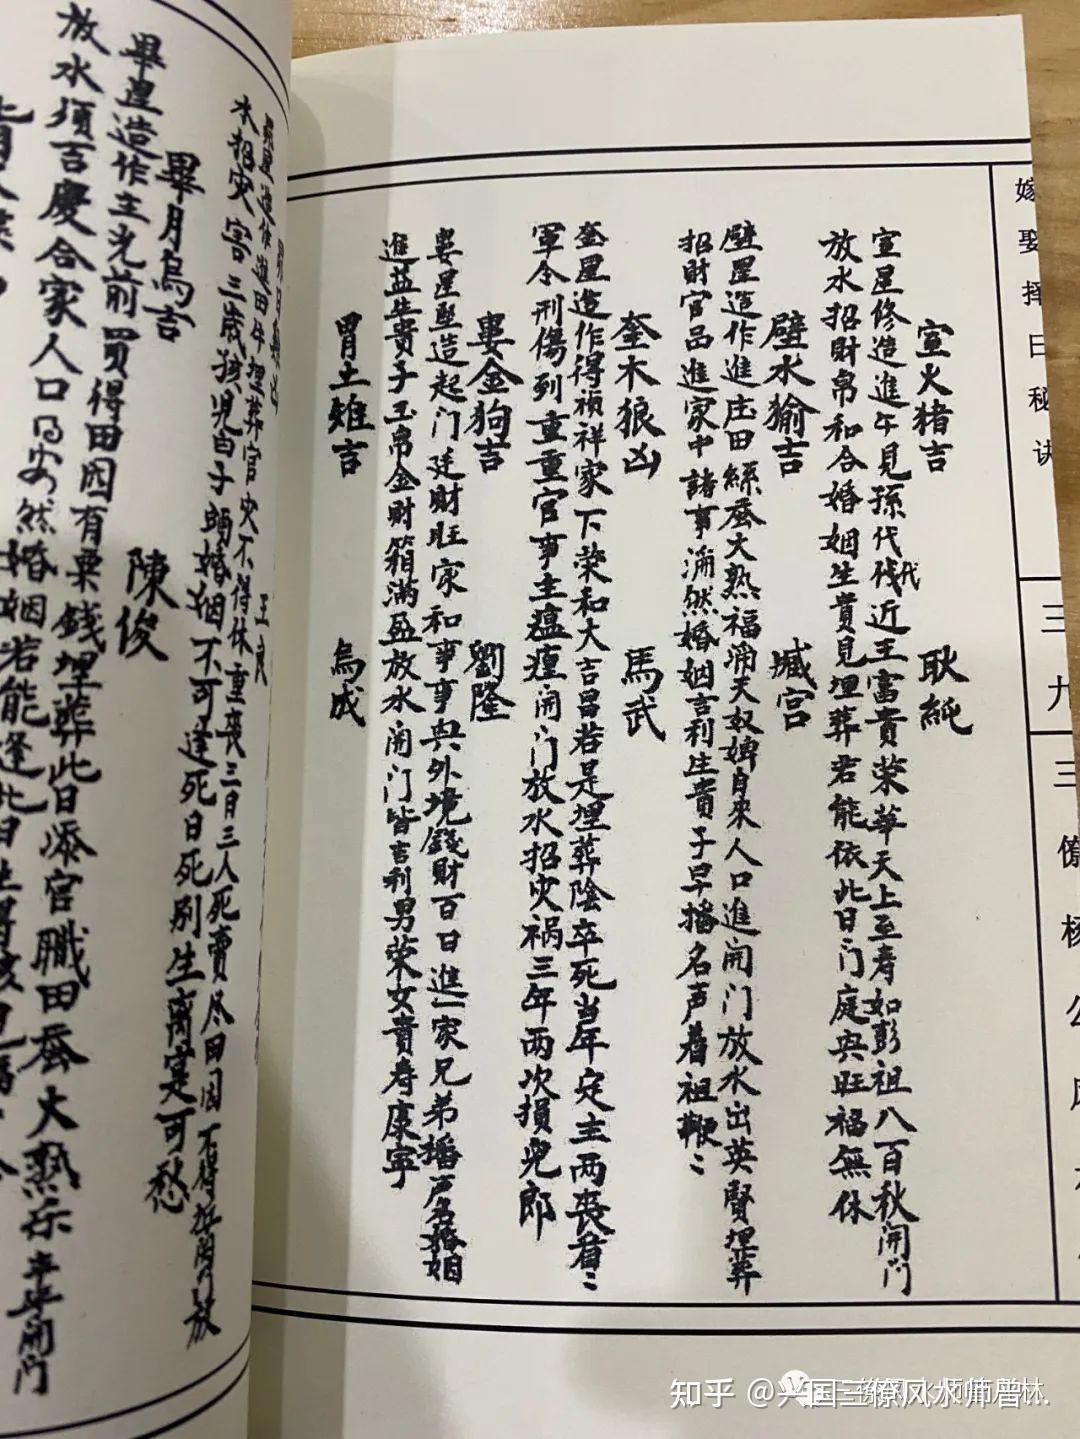 嫁娶择日秘诀
三九
三僚杨公
室火猪吉 耿純
室星修造進午見孫代代代近王富貴荣華天上至寿如彭祖八百秋開门
放水招財帛和合婚姻生貴見埋葬若能依此日门庭興旺福無休
壁水㺄吉 臧宫
壁星造作進庄田絲蚕大熟福滔天奴婢自來人口進開门放水出英賢埋葬
招財官品進家中諸事滔然婚姻吉利生貴子早播名声着祖鞭
奎木狼凶 馬武
奎星造作得禎祥家下荣和大吉昌若是埋葬陰卒死当年定主两喪着
軍令刑傷列重重官事主瘟瘟開门放水招灾祸三年两次損兒郎
婁金狗吉 劉隆
婁星竪造起门廷財旺家和事事興外境錢財百日進一家兄弟播声名婚姻
進益生貴子玉帛金財箱滿盈放水開门皆吉利男荣女貴寿康宁
胃土雉吉 烏成
王良
昴星造作進田牛埋葬官灾不得休重喪三日三人死賣尽田园不得
开门放
水招灾害三歲孩児白子頭婚姻不可逢死日死别生离寔可愁
畢月烏吉 陳俊
畢星造作主光前買得田园有粟錢埋葬此日添官職田蚕大熟乐年年開门
放水須吉慶合家人口得安然婚姻若能逢此日生得孩児福
知乎 @兴国三僚风水师曾...